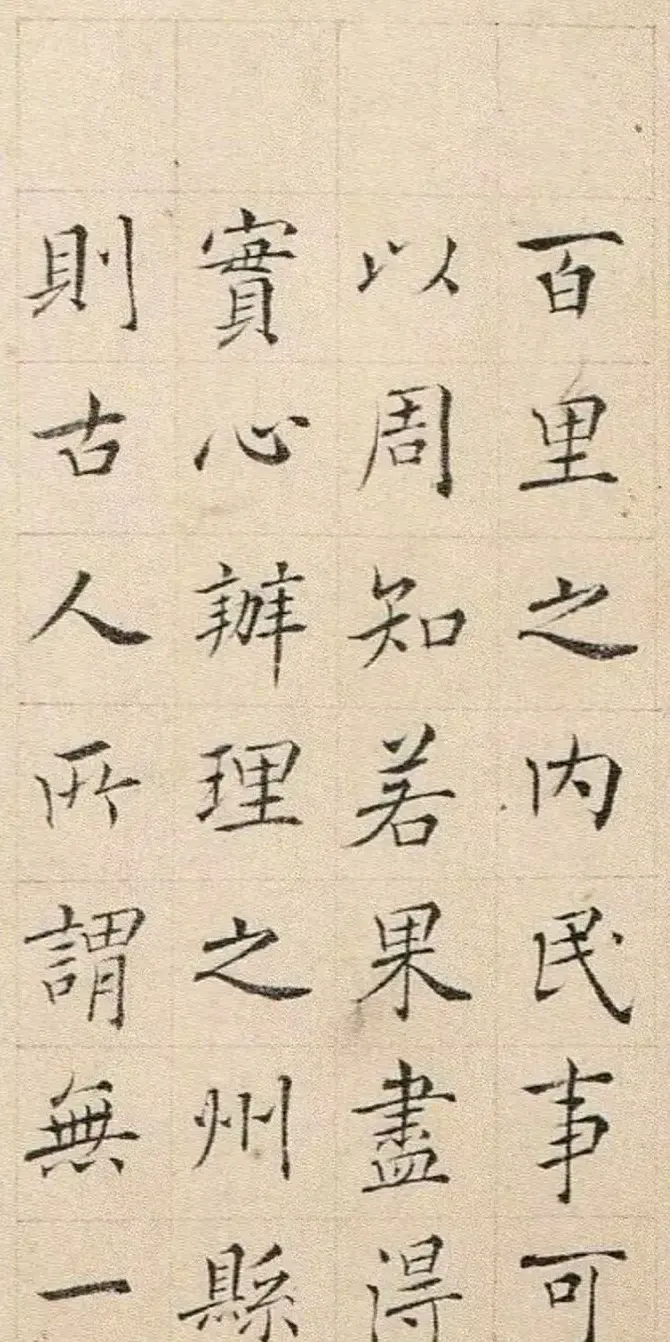 百里之內民事可
以周知若果盡得
實心辦理之州縣
則古人所謂無一